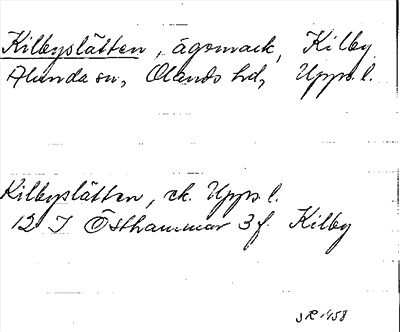 Kilbyslätten, ägomark, Kilby
Alunda sn, Olands hd, Upps. l.
Kilbyslätten, ek. Upps. l.
12 I Östhammar 3f. Kilby
1958